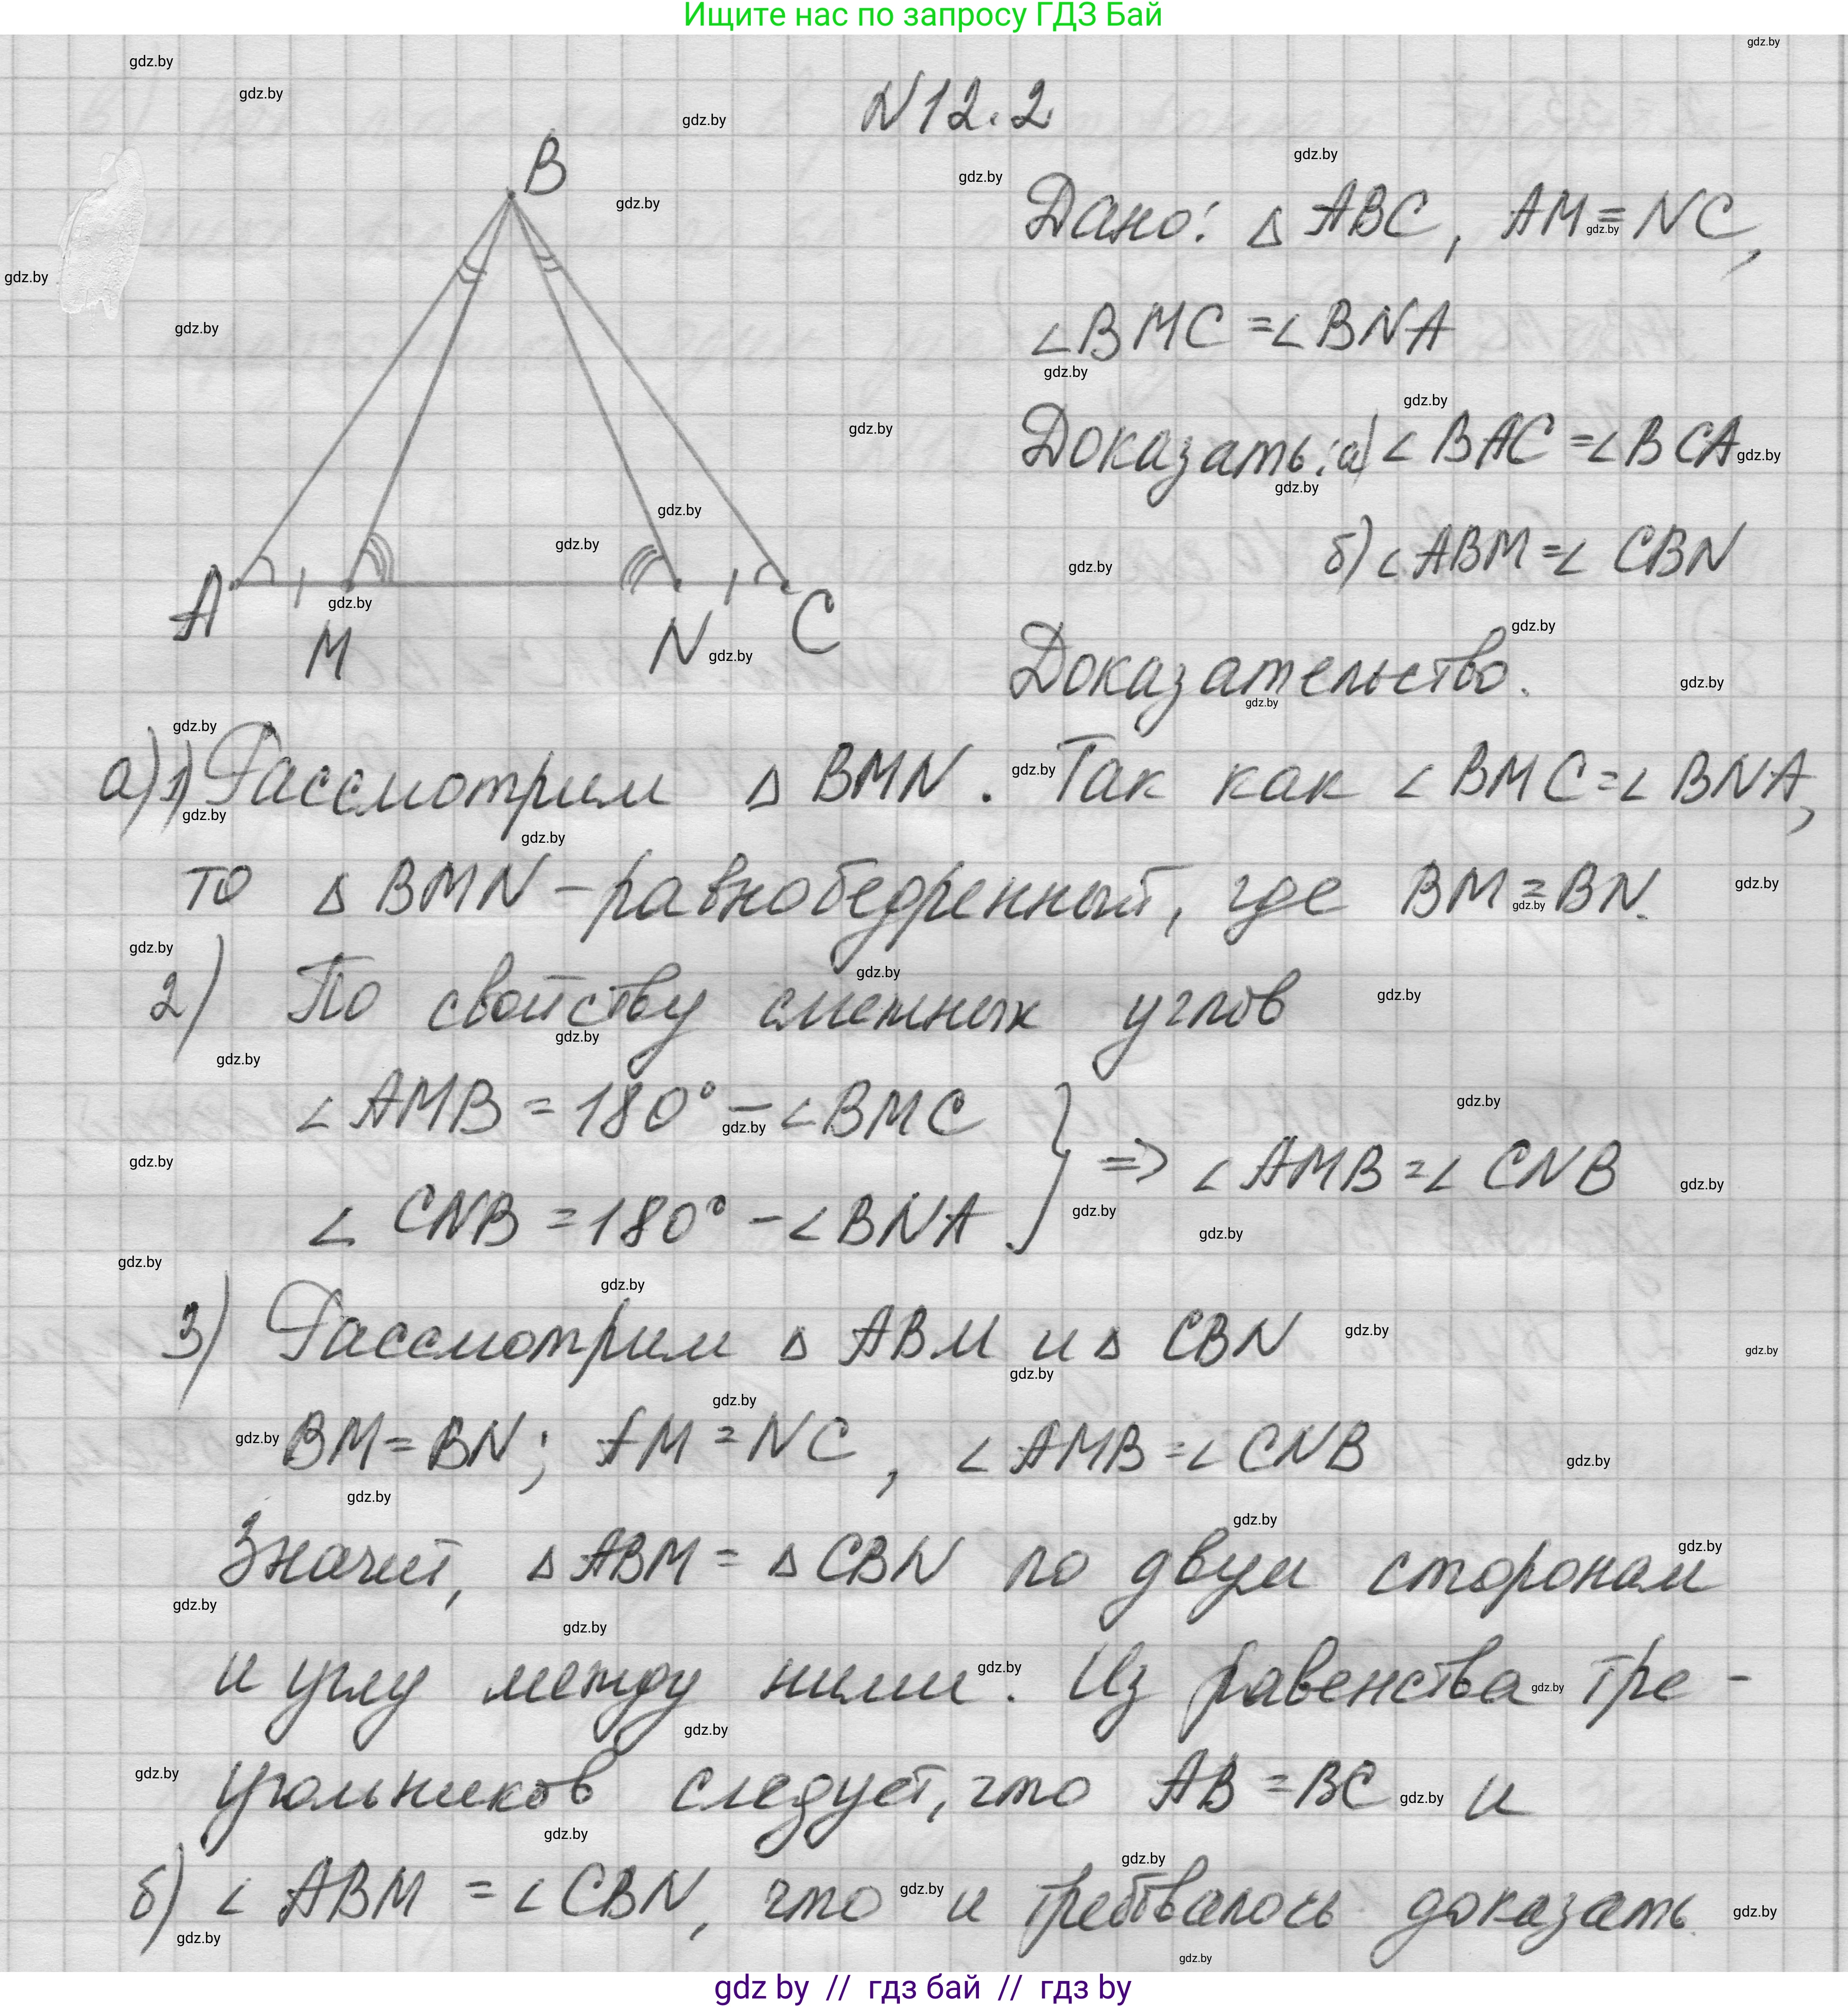 Ищите нас по запросу ГДЗ Бай
N12.2
B
A
M
N
C
Дано: Δ ABC, AM = NC,
∠BMC = ∠BNA
Доказать: а) ∠BAC = ∠BCA
б) ∠ABM = ∠CBN
Доказательство.
а) 1) Рассмотрим Δ BMN. Так как ∠BMC = ∠BNA,
то Δ BMN – равнобедренный, где BM = BN.
2) По свойству смежных углов
∠AMB = 180° – ∠BMC
∠CNB = 180° – ∠BNA } => ∠AMB = ∠CNB
3) Рассмотрим Δ ABM и Δ CBN
BM = BN; AM = NC, ∠AMB = ∠CNB
Значит, Δ ABM = Δ CBN по двум сторонам
и углу между ними. Из равенства тре-
угольников следует, что AB = BC и
б) ∠ABM = ∠CBN, что и требовалось доказать.
gdz by // гдз бай // гдз by